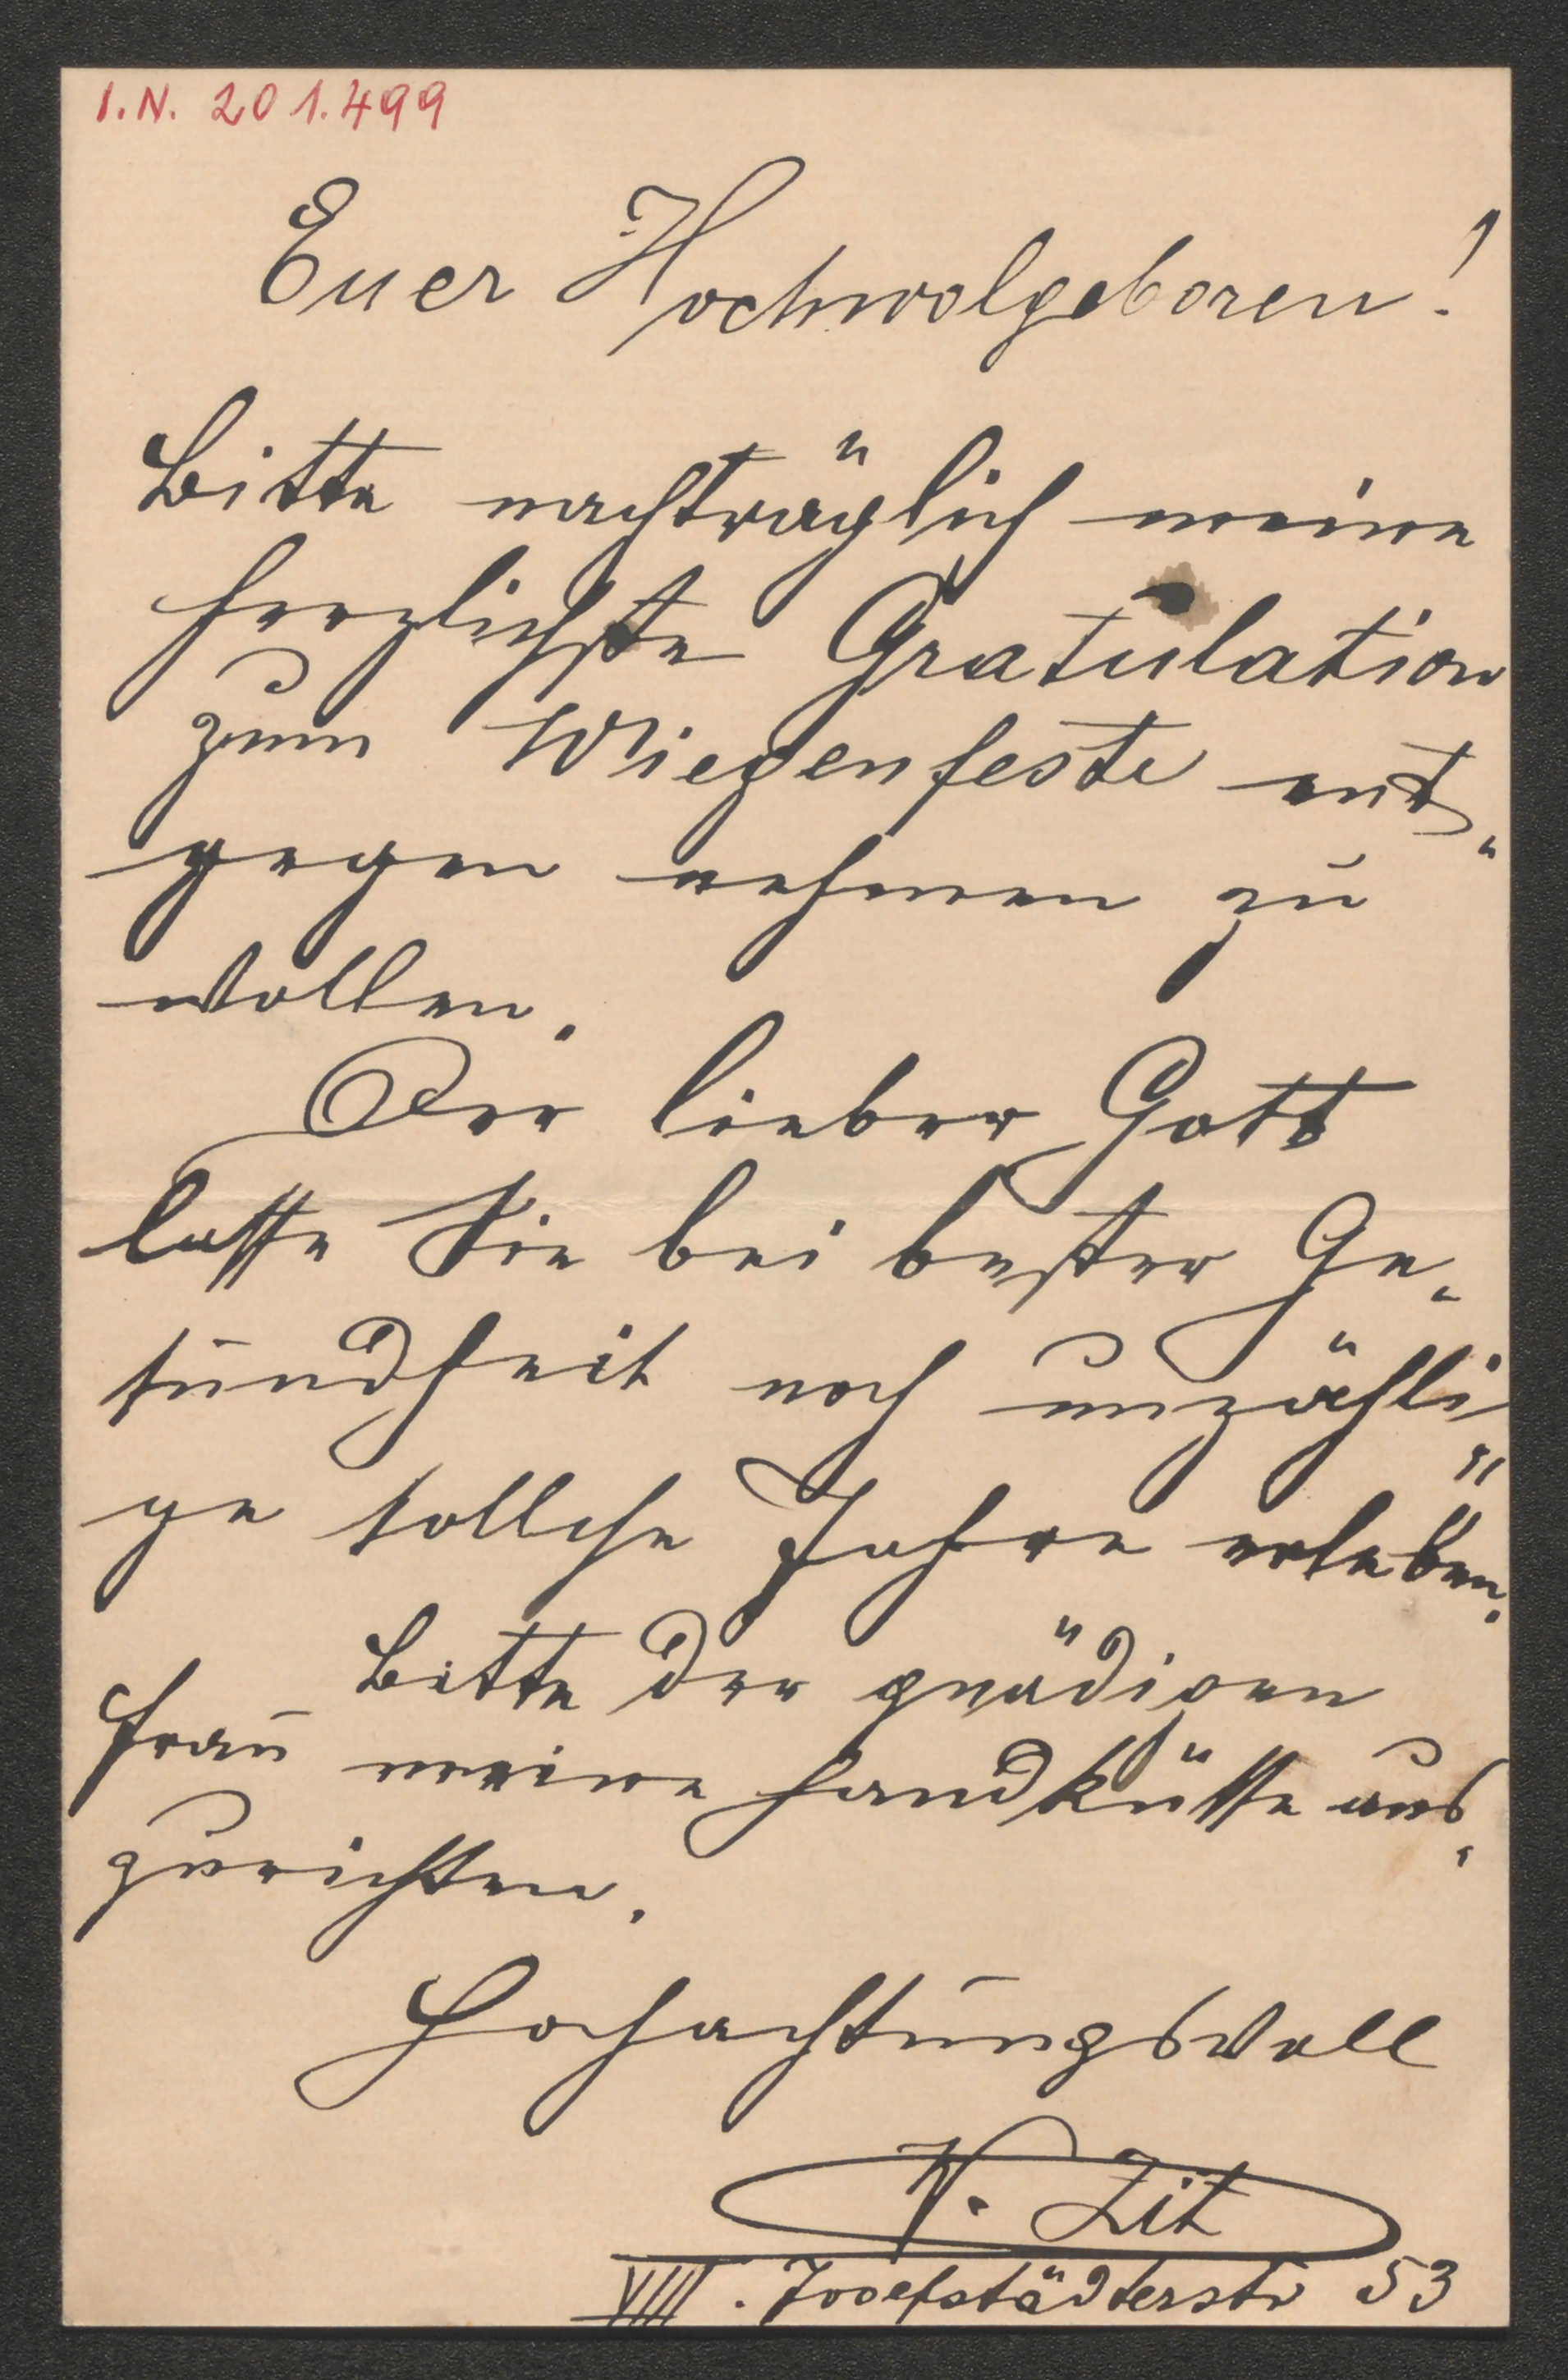 I.N. 201.499
Euer Hochwolgeboren!
Bitte nachträglich meine
herzlichste Gratulation
zum Wiegenfeste ent„
gegen nehmen zu
wollen.
Der lieber Gott
lasse Sie bei bester Ge„
sundheit noch unzähli„
ge sollche Jahre erleben.
Bitte der gnädigen
Frau meine Handküsse aus„
zurichten.
Hochachtungsvoll
V. Zit
VIII. Josefstädterstr 53